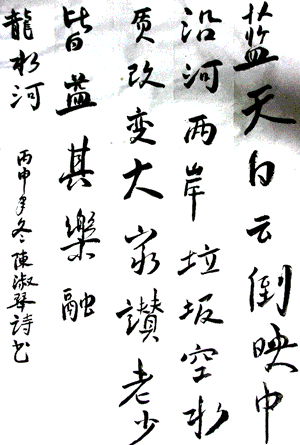 蓝天白云倒映中
沿河两岸垃圾空水
质改变大家讚老少
皆益其樂融
龍水河
丙申年冬陳淑琴詩书